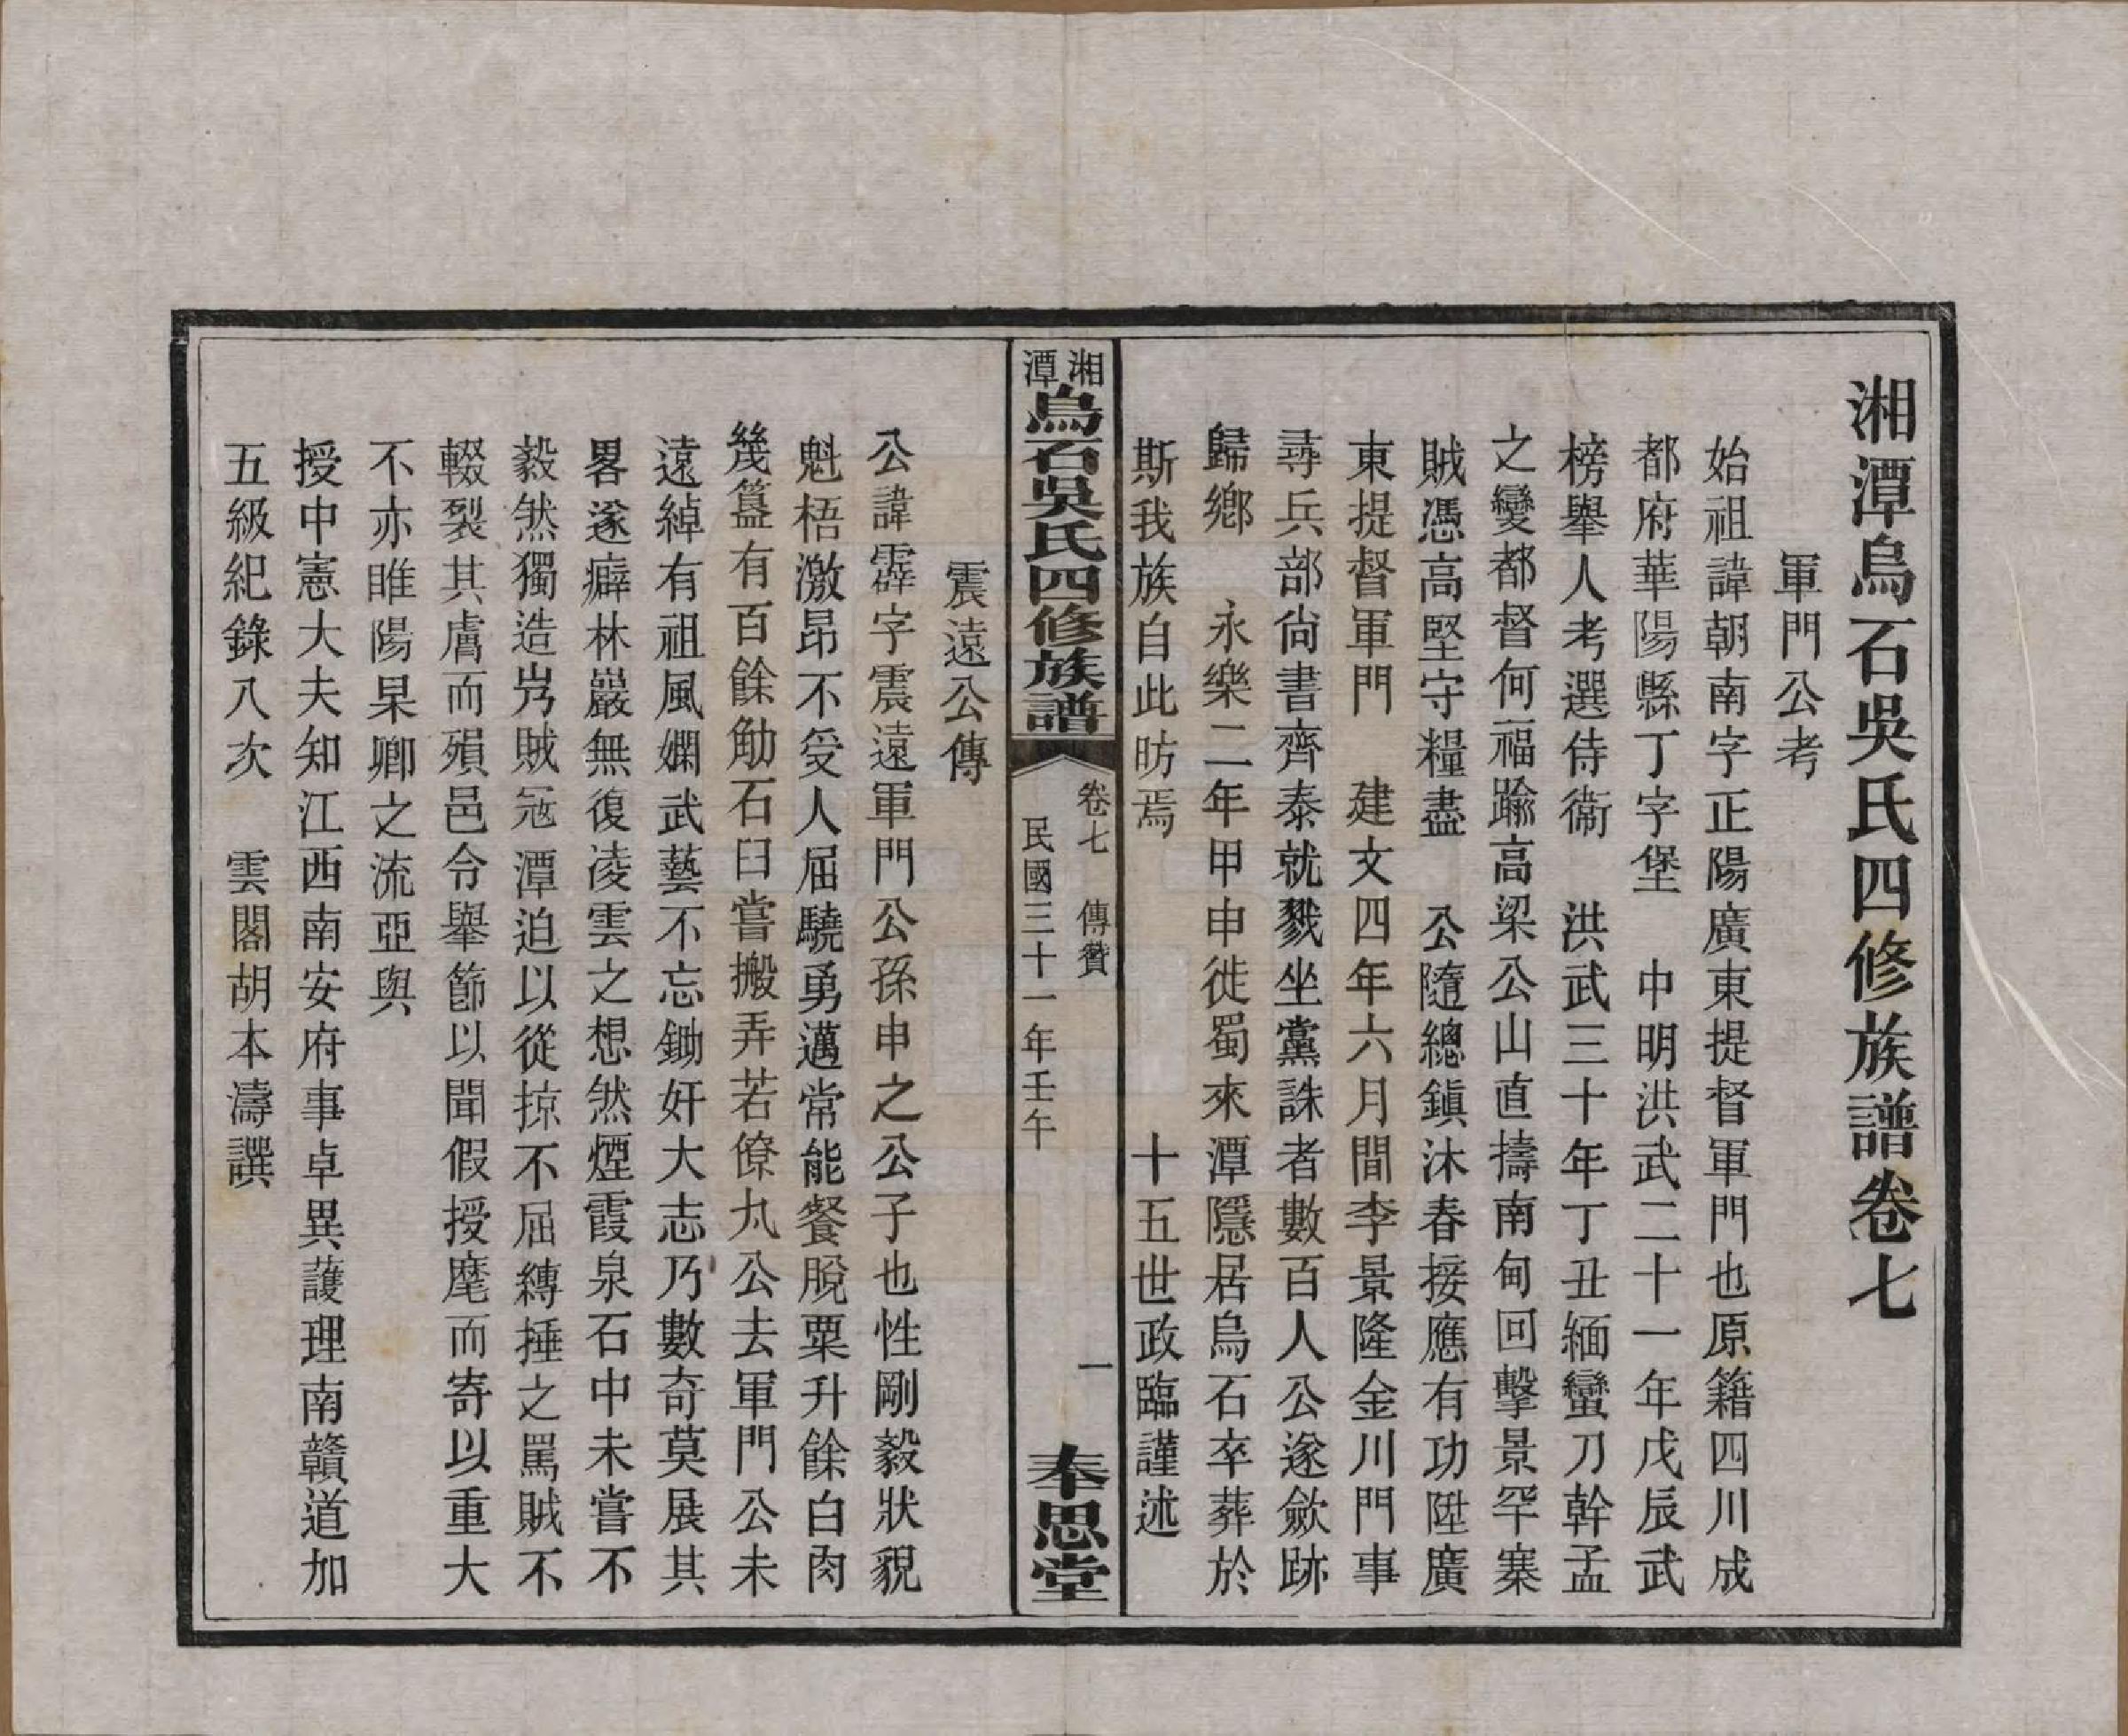 湘潭烏石吳氏四修族譜卷七
軍門公考
始祖諱朝南字正陽廣東提督軍門也原籍四川成
都府華陽縣丁字堡　中明洪武二十一年戊辰武
榜舉人考選侍衞　洪武三十年丁丑緬蠻刀幹孟
之變都督何福踰高梁公山直擣南甸回擊景罕寨
賊憑高堅守糧盡　公隨總鎭沐春接應有功陞廣
東提督軍門　建文四年六月間李景隆金川門事
尋兵部尙書齊泰就戮坐黨誅者數百人公遂歛跡
歸鄉　永樂二年甲申徙蜀來潭隱居烏石卒葬於
斯我族自此昉焉　十五世政臨謹述
湘潭烏石吳氏四修族譜
卷七　傳贊　一
民國三十一年壬午
奉思堂
震遠公傳
公諱霹字震遠軍門公孫申之公子也性剛毅狀貌
魁梧激昂不受人屈驍勇邁常能餐脫粟升餘白肉
幾簋有百餘觔石臼嘗搬弄若僚丸公去軍門公未
遠綽有祖風嫻武藝不忘鋤奸大志乃數奇莫展其
畧遂癖林巖無復凌雲之想然煙霞泉石中未嘗不
毅然獨造岁賊冦潭迫以從掠不屈縛捶之罵賊不
輟裂其膚而殞邑令舉節以聞假授麾而寄以重大
不亦睢陽杲卿之流亞與
授中憲大夫知江西南安府事卓異護理南贛道加
五級紀錄八次　雲閣胡本濤譔